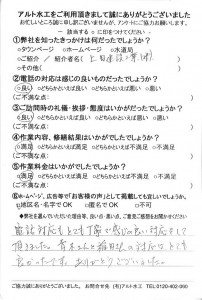 アルト水工をご利用頂きまして誠にありがとうございました
お忙しいところ誠に申し訳ございませんが、アンケートにご協力お願いします。
― 該当する ○ に印をつけてください ―
①弊社を知ったきっかけは何だったでしょうか？
○タウンページ ○ホームページ ○水道局
○ご紹介 / 紹介者名(
○その他(
②電話の対応は感じの良いものだったでしょうか？
○良い ○どちらかといえば良い ○どちらかといえば悪い ○悪い
③ご訪問時の礼儀・挨拶・態度はいかがだったでしょうか？
○良い ○どちらかといえば良い ○どちらかといえば悪い ○悪い
④作業内容、修繕結果はいかがでしたでしょうか？
○満足 ○どちらかといえば満足 ○どちらかといえば不満 ○不満
⑤作業料金はいかがでしたでしょうか？
○満足 ○どちらかといえば満足 ○どちらかといえば不満 ○不満
⑥ホームページ、広告等で「お客様の声」として掲載しても宜しいですか？
○地区名・名字でOK ○匿名でOK ○不可
●弊社を選んでいただいた理由等、良い点・悪い点、ご意見ご感想をお聞かせください
電話対応もとても丁寧で感じの良い対応をして
頂きました。
良かったです。ありがとうございました。
ご協力誠にありがとうございました。 お問合せ先 (有)アルト水工 TEL 0120-402-060